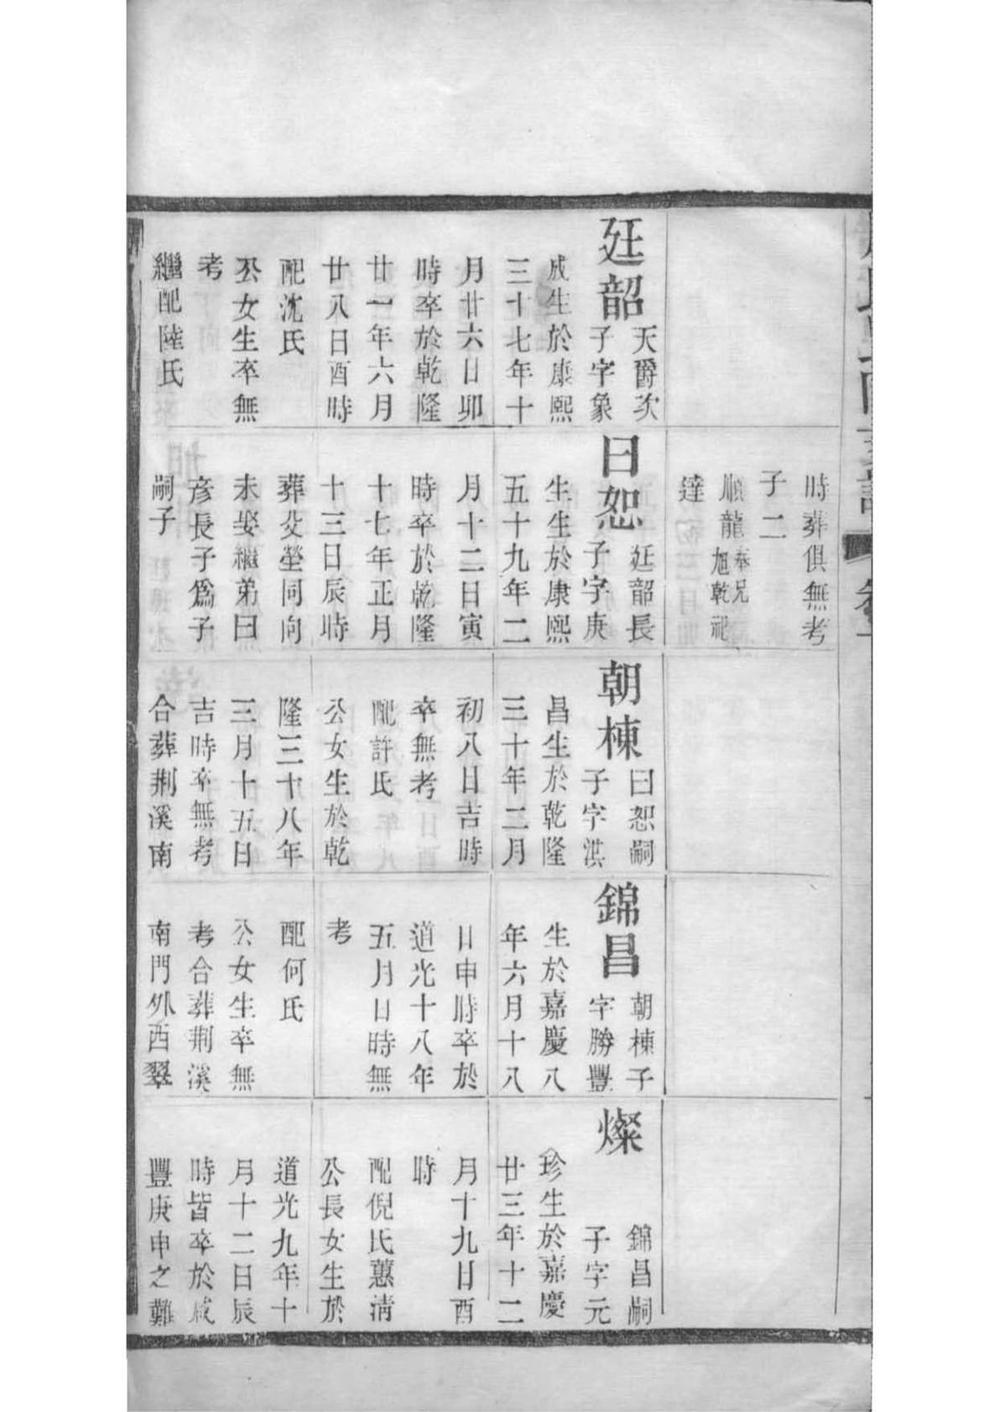 廷韶
天爵次
子字象
成生於康熙
三十七年十
月廿六日卯
時卒於乾隆
廿一年六月
廿八日酉時
配沈氏
公女生卒無
考
繼配陸氏
時葬俱無考
子二
順龍奉兄旭乾祀
達
曰恕
廷韶長
子字庚
生生於康熙
五十九年二
月十二日寅
時卒於乾隆
十七年正月
十三日辰時
葬父塋同向
未娶繼弟曰
彥長子爲子
嗣子
朝棟
曰恕嗣
子字淇
昌生於乾隆
三十年二月
初八日吉時
卒無考
配許氏
公女生於乾
隆三十八年
三月十五日
吉時卒無考
合葬荆溪南
錦昌
朝棟子
字勝豐
生於嘉慶八
年六月十八
日申時卒於
道光十八年
五月日時無
考
配何氏
公女生卒無
考合葬荆溪
南門外西翠
燦
錦昌嗣
子字元
珍生於嘉慶
廿三年十二
月十九日酉
時
配倪氏蕙清
公長女生於
道光九年十
月十二日辰
時皆卒於咸
豐庚申之難